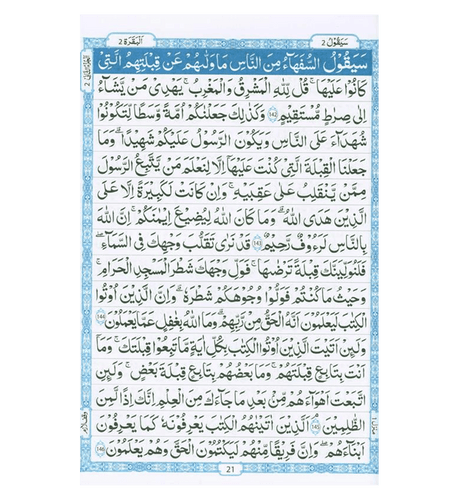 سَيَقُوْلُ 2
اَلْبَقَرَة 2
سَيَقُوْلُ السُّفَهَآءُ مِنَ النَّاسِ مَا وَلّٰىهُمْ عَنْ قِبْلَتِهِمُ الَّتِيْ
كَانُوْا عَلَيْهَا ؕ قُلْ لِّلّٰهِ الْمَشْرِقُ وَالْمَغْرِبُ ؕ يَهْدِيْ مَنْ يَّشَآءُ
اِلٰى صِرَاطٍ مُّسْتَقِيْمٍ ۝142 وَكَذٰلِكَ جَعَلْنٰكُمْ اُمَّةً وَّسَطًا لِّتَكُوْنُوْا
شُهَدَآءَ عَلَى النَّاسِ وَيَكُوْنَ الرَّسُوْلُ عَلَيْكُمْ شَهِيْدًا ؕ وَمَا
جَعَلْنَا الْقِبْلَةَ الَّتِيْ كُنْتَ عَلَيْهَاۤ اِلَّا لِنَعْلَمَ مَنْ يَّتَّبِعُ الرَّسُوْلَ
مِمَّنْ يَّنْقَلِبُ عَلٰى عَقِبَيْهِ ؕ وَاِنْ كَانَتْ لَكَبِيْرَةً اِلَّا عَلَى
الَّذِيْنَ هَدَى اللّٰهُ ؕ وَمَا كَانَ اللّٰهُ لِيُضِيْعَ اِيْمَانَكُمْ ؕ اِنَّ اللّٰهَ
بِالنَّاسِ لَرَءُوْفٌ رَّحِيْمٌ ۝143 قَدْ نَرٰى تَقَلُّبَ وَجْهِكَ فِي السَّمَآءِ ۚ
فَلَنُوَلِّيَنَّكَ قِبْلَةً تَرْضٰىهَا ۪ فَوَلِّ وَجْهَكَ شَطْرَ الْمَسْجِدِ الْحَرَامِ ؕ
وَحَيْثُ مَا كُنْتُمْ فَوَلُّوْا وُجُوْهَكُمْ شَطْرَهٗ ؕ وَاِنَّ الَّذِيْنَ اُوْتُوا
الْكِتٰبَ لَيَعْلَمُوْنَ اَنَّهُ الْحَقُّ مِنْ رَّبِّهِمْ ؕ وَمَا اللّٰهُ بِغَافِلٍ عَمَّا يَعْمَلُوْنَ ۝144
وَلَىِٕنْ اَتَيْتَ الَّذِيْنَ اُوْتُوا الْكِتٰبَ بِكُلِّ اٰيَةٍ مَّا تَبِعُوْا قِبْلَتَكَ ۚ وَمَاۤ
اَنْتَ بِتَابِعٍ قِبْلَتَهُمْ ۚ وَمَا بَعْضُهُمْ بِتَابِعٍ قِبْلَةَ بَعْضٍ ؕ وَلَىِٕنِ
اتَّبَعْتَ اَهْوَآءَهُمْ مِّنْۢ بَعْدِ مَا جَآءَكَ مِنَ الْعِلْمِ ۙ اِنَّكَ اِذًا لَّمِنَ
الظّٰلِمِيْنَ ۝145 اَلَّذِيْنَ اٰتَيْنٰهُمُ الْكِتٰبَ يَعْرِفُوْنَهٗ كَمَا يَعْرِفُوْنَ
اَبْنَآءَهُمْ ؕ وَاِنَّ فَرِيْقًا مِّنْهُمْ لَيَكْتُمُوْنَ الْحَقَّ وَهُمْ يَعْلَمُوْنَ ۝146
21